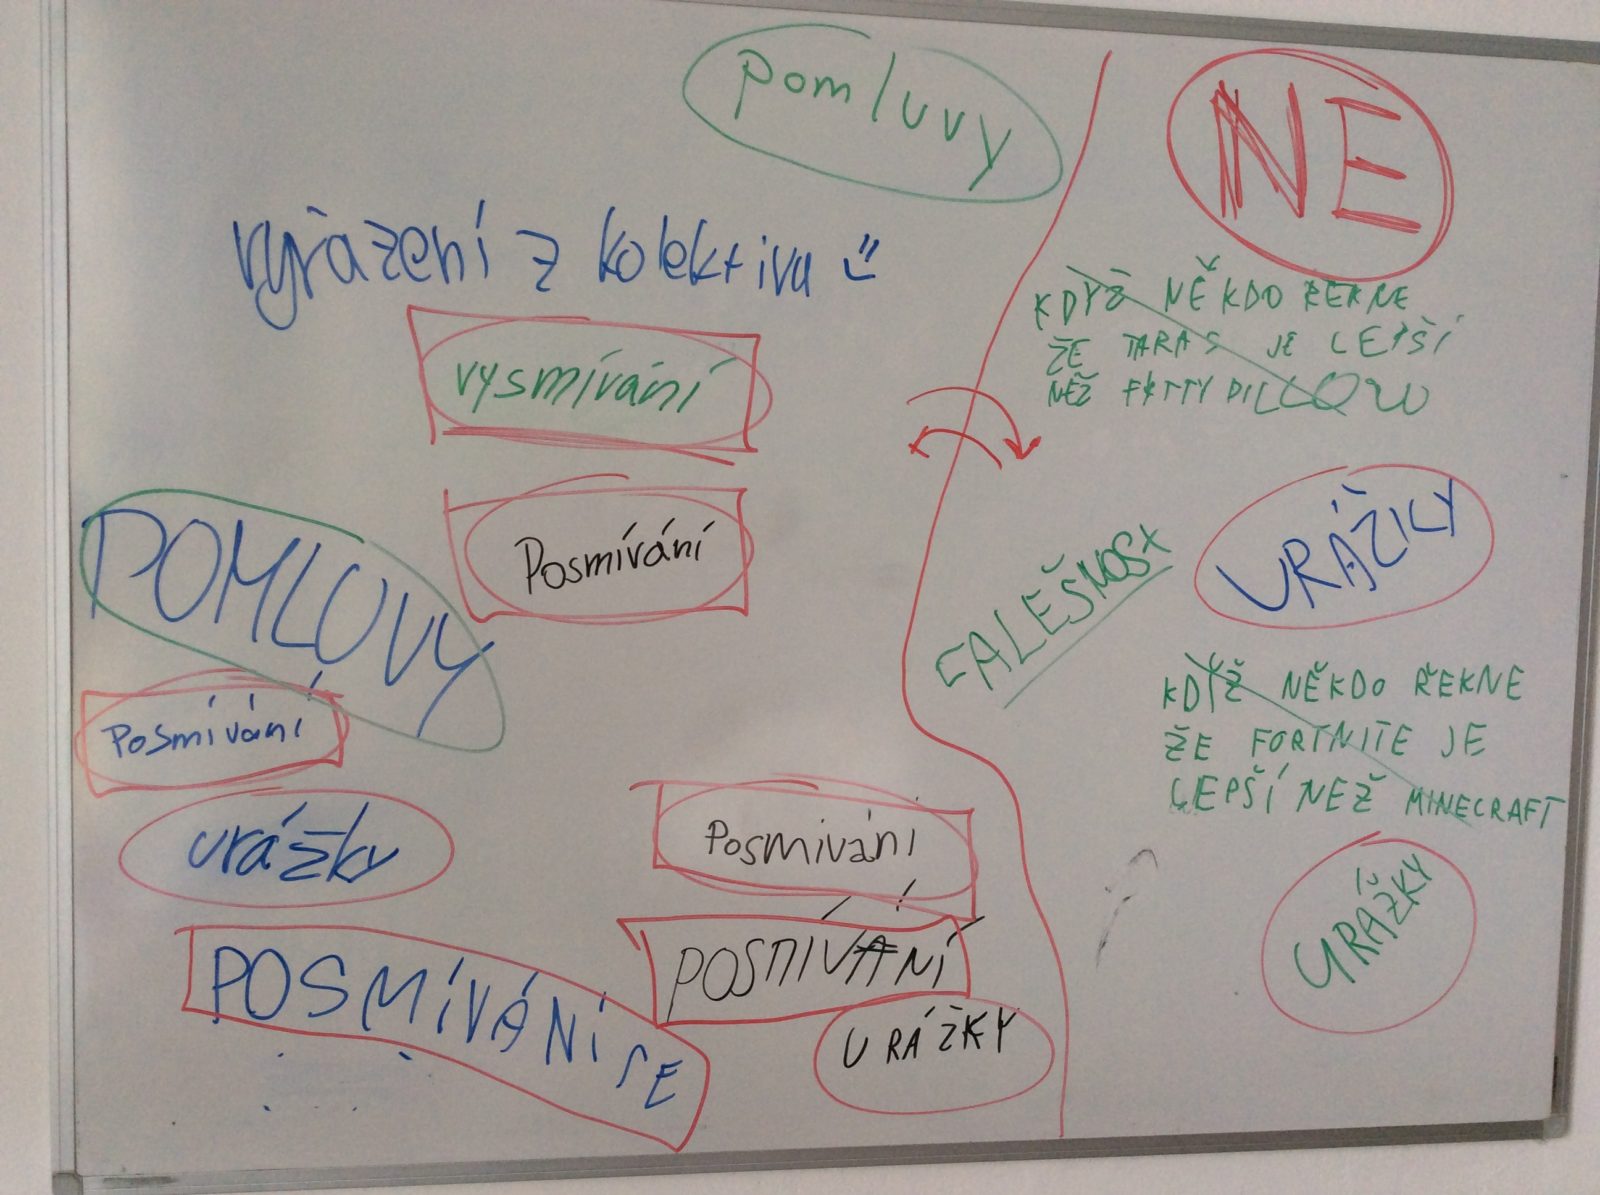 pomluvy
NE
vyřazení z kolektivu
KDYŽ NĚKDO ŘEKNE
ŽE TARAS JE LEPŠÍ
NEŽ FATTY PILLOW
vysmívání
Posmívání
POMLUVY
URÁŽKY
FALEŠNOST
Posmívání
KDYŽ NĚKDO ŘEKNE
ŽE FORTNITE JE
LEPŠÍ NEŽ MINECRAFT
urážky
Posmívání
URÁŽKY
POSMÍVÁNÍ
POSMÍVÁNÍ SE
URÁŽKY